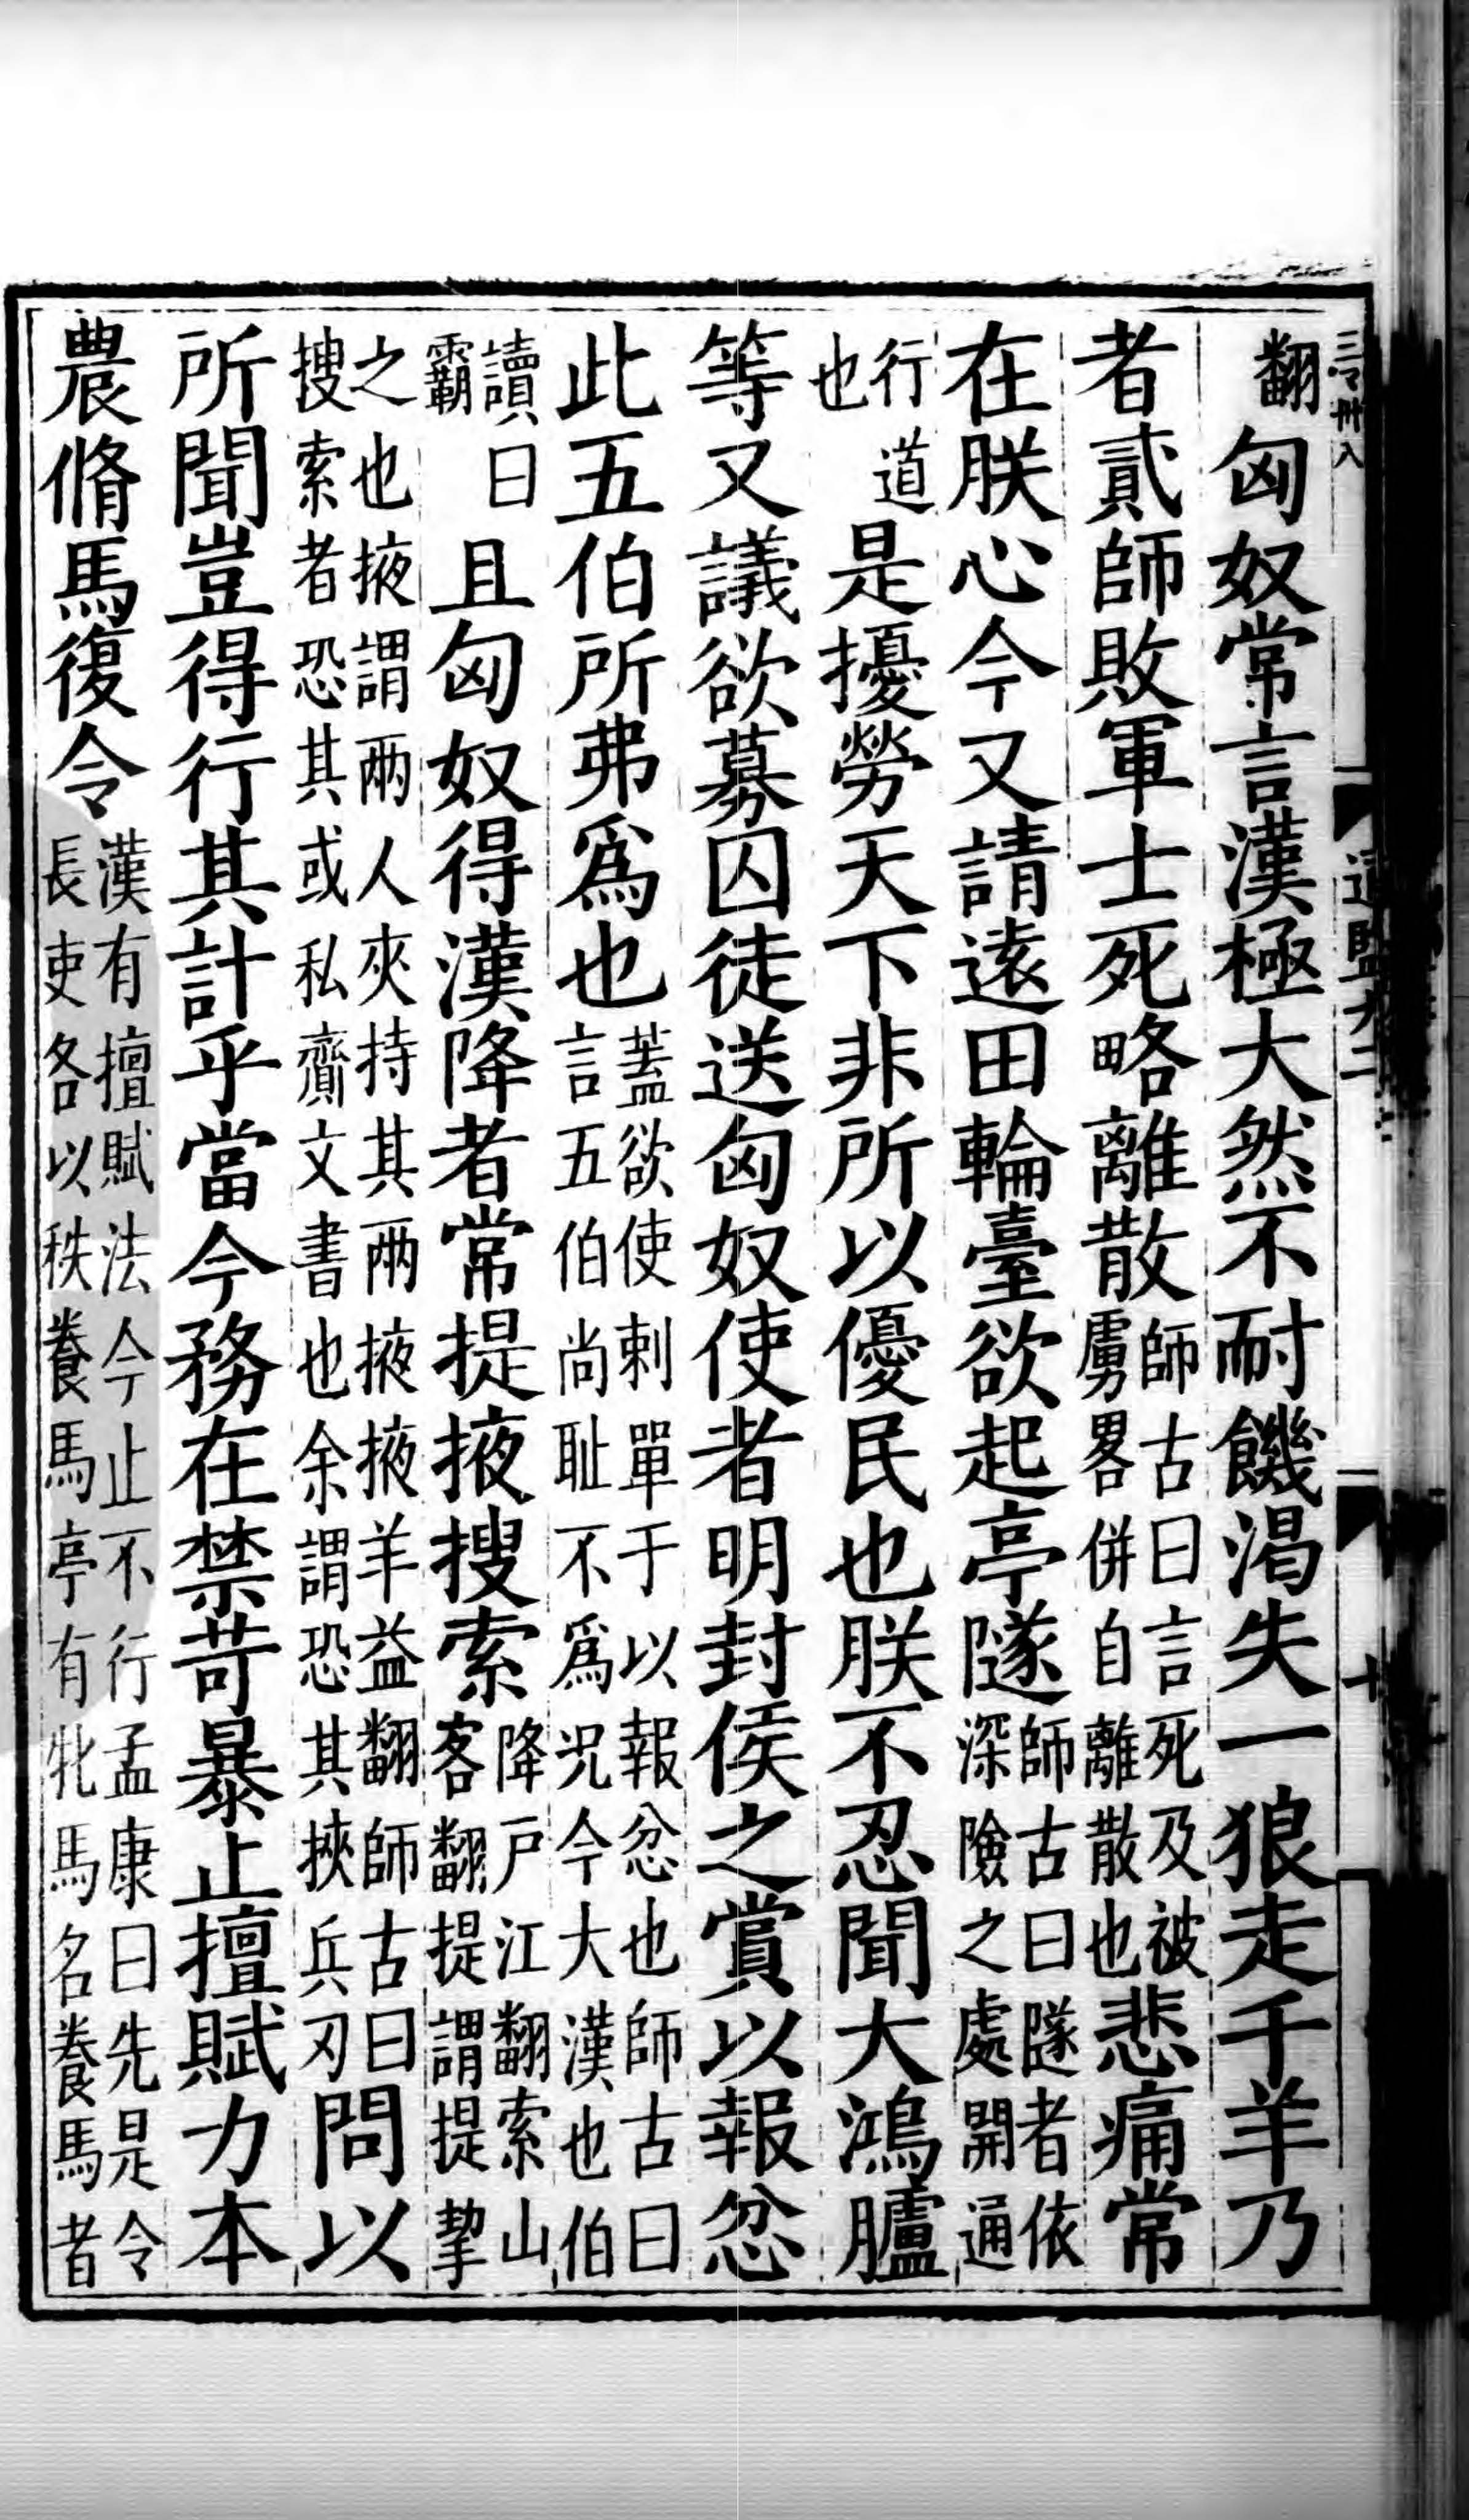 三百卅八
通鑑九二
十
翻匈奴常言漢極大然不耐饑渴失一狼走千羊乃
者貳師敗軍士死略離散師古曰言死及被虜畧併自離散也悲痛常
在朕心今又請遠田輪臺欲起亭隧師古曰隧者依深險之處開通
行道也是擾勞天下非所以優民也朕不忍聞大鴻臚
等又議欲募囚徒送匈奴使者明封侯之賞以報忿
此五伯所弗爲也蓋欲使刺單于以報忿也師古曰言五伯尚耻不爲况今大漢也伯
讀曰霸且匈奴得漢降者常提掖搜索降戸江翻索山客翻提謂提挈
之也掖謂兩人夾持其兩掖掖羊益翻師古曰搜索者恐其或私齎文書也余謂恐其挾兵刃問以
所聞豈得行其計乎當今務在禁苛暴止擅賦力本
農脩馬復令漢有擅賦法今止不行孟康曰先是令長吏各以秩養馬亭有牝馬名養馬者